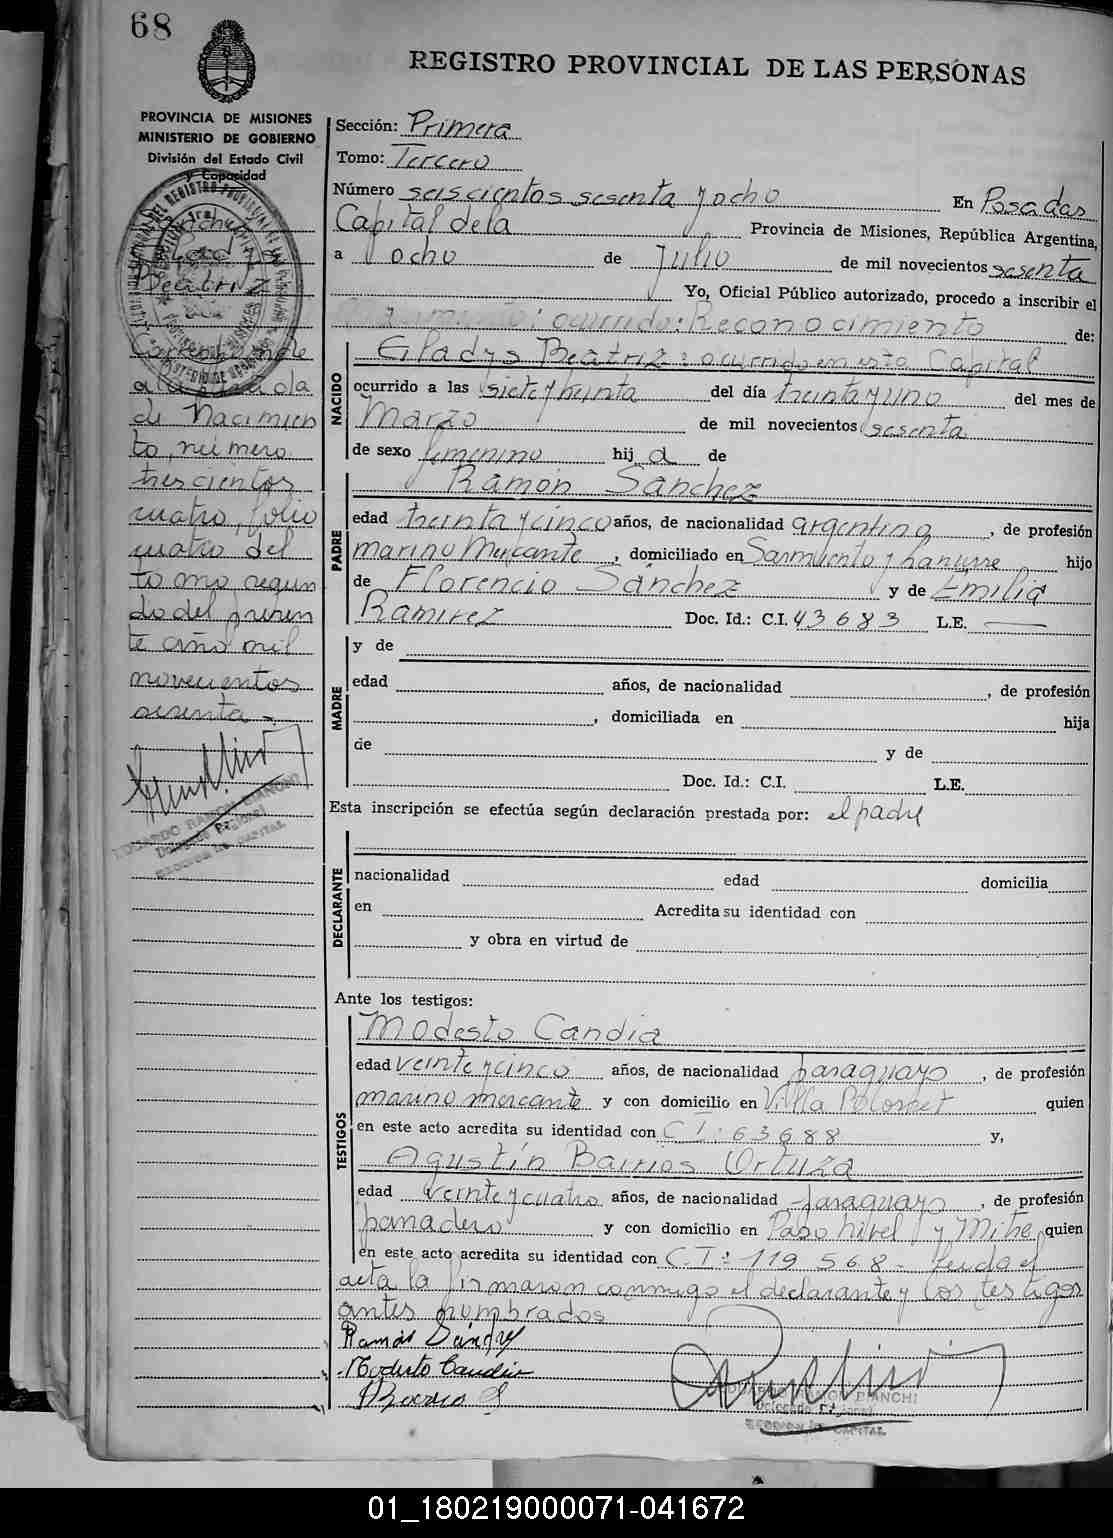 68
REGISTRO PROVINCIAL DE LAS PERSONAS
PROVINCIA DE MISIONES
MINISTERIO DE GOBIERNO
División del Estado Civil
y Capacidad
Beatriz
Corresponde
al acta
de Nacimien
to número
trescientos
cuatro, folio
cuatro del
tomo segun
do del presen
te año mil
novecientos
sesenta
Sección: Primera
Tomo: Tercero
Número seiscientos sesenta y ocho En Posadas
Capital de la Provincia de Misiones, República Argentina,
a ocho de Julio de mil novecientos sesenta
Yo, Oficial Público autorizado, procedo a inscribir el
ocurrido: Reconocimiento de:
NACIDO
Gladys Beatriz: ocurrido en esta Capital
ocurrido a las siete y treinta del día treinta y uno del mes de
Marzo de mil novecientos sesenta
de sexo femenino hij a de
PADRE
Ramón Sánchez
edad treinta y cinco años, de nacionalidad argentino, de profesión
marino Mercante, domiciliado en Sarmiento y hijo
de Florencio Sánchez y de Emilia
Ramirez Doc. Id.: C.I. 43683 L.E. —
MADRE
y de
edad años, de nacionalidad , de profesión
, domiciliada en hija
de y de
Doc. Id.: C.I. L.E.
Esta inscripción se efectúa según declaración prestada por: el padre
DECLARANTE
nacionalidad edad domicilia
en Acredita su identidad con
y obra en virtud de
Ante los testigos:
TESTIGOS
Modesto Candia
edad veinte y cinco años, de nacionalidad paraguayo, de profesión
marino mercante y con domicilio en Villa quien
en este acto acredita su identidad con C I: 63688 y,
Agustín Barrios Ortuza
edad veinte y cuatro años, de nacionalidad paraguayo, de profesión
panadero y con domicilio en Paso nivel y Mitre quien
en este acto acredita su identidad con C.I: 119 568. Leida el
acta la firmaron conmigo el declarante y los testigos
antes nombrados
Ramón Sánchez
Modesto Candia
Barrios
EDUARDO RAMON BIANCHI
Delegado Regional
SECCION 1a. CAPITAL
01_180219000071-041672